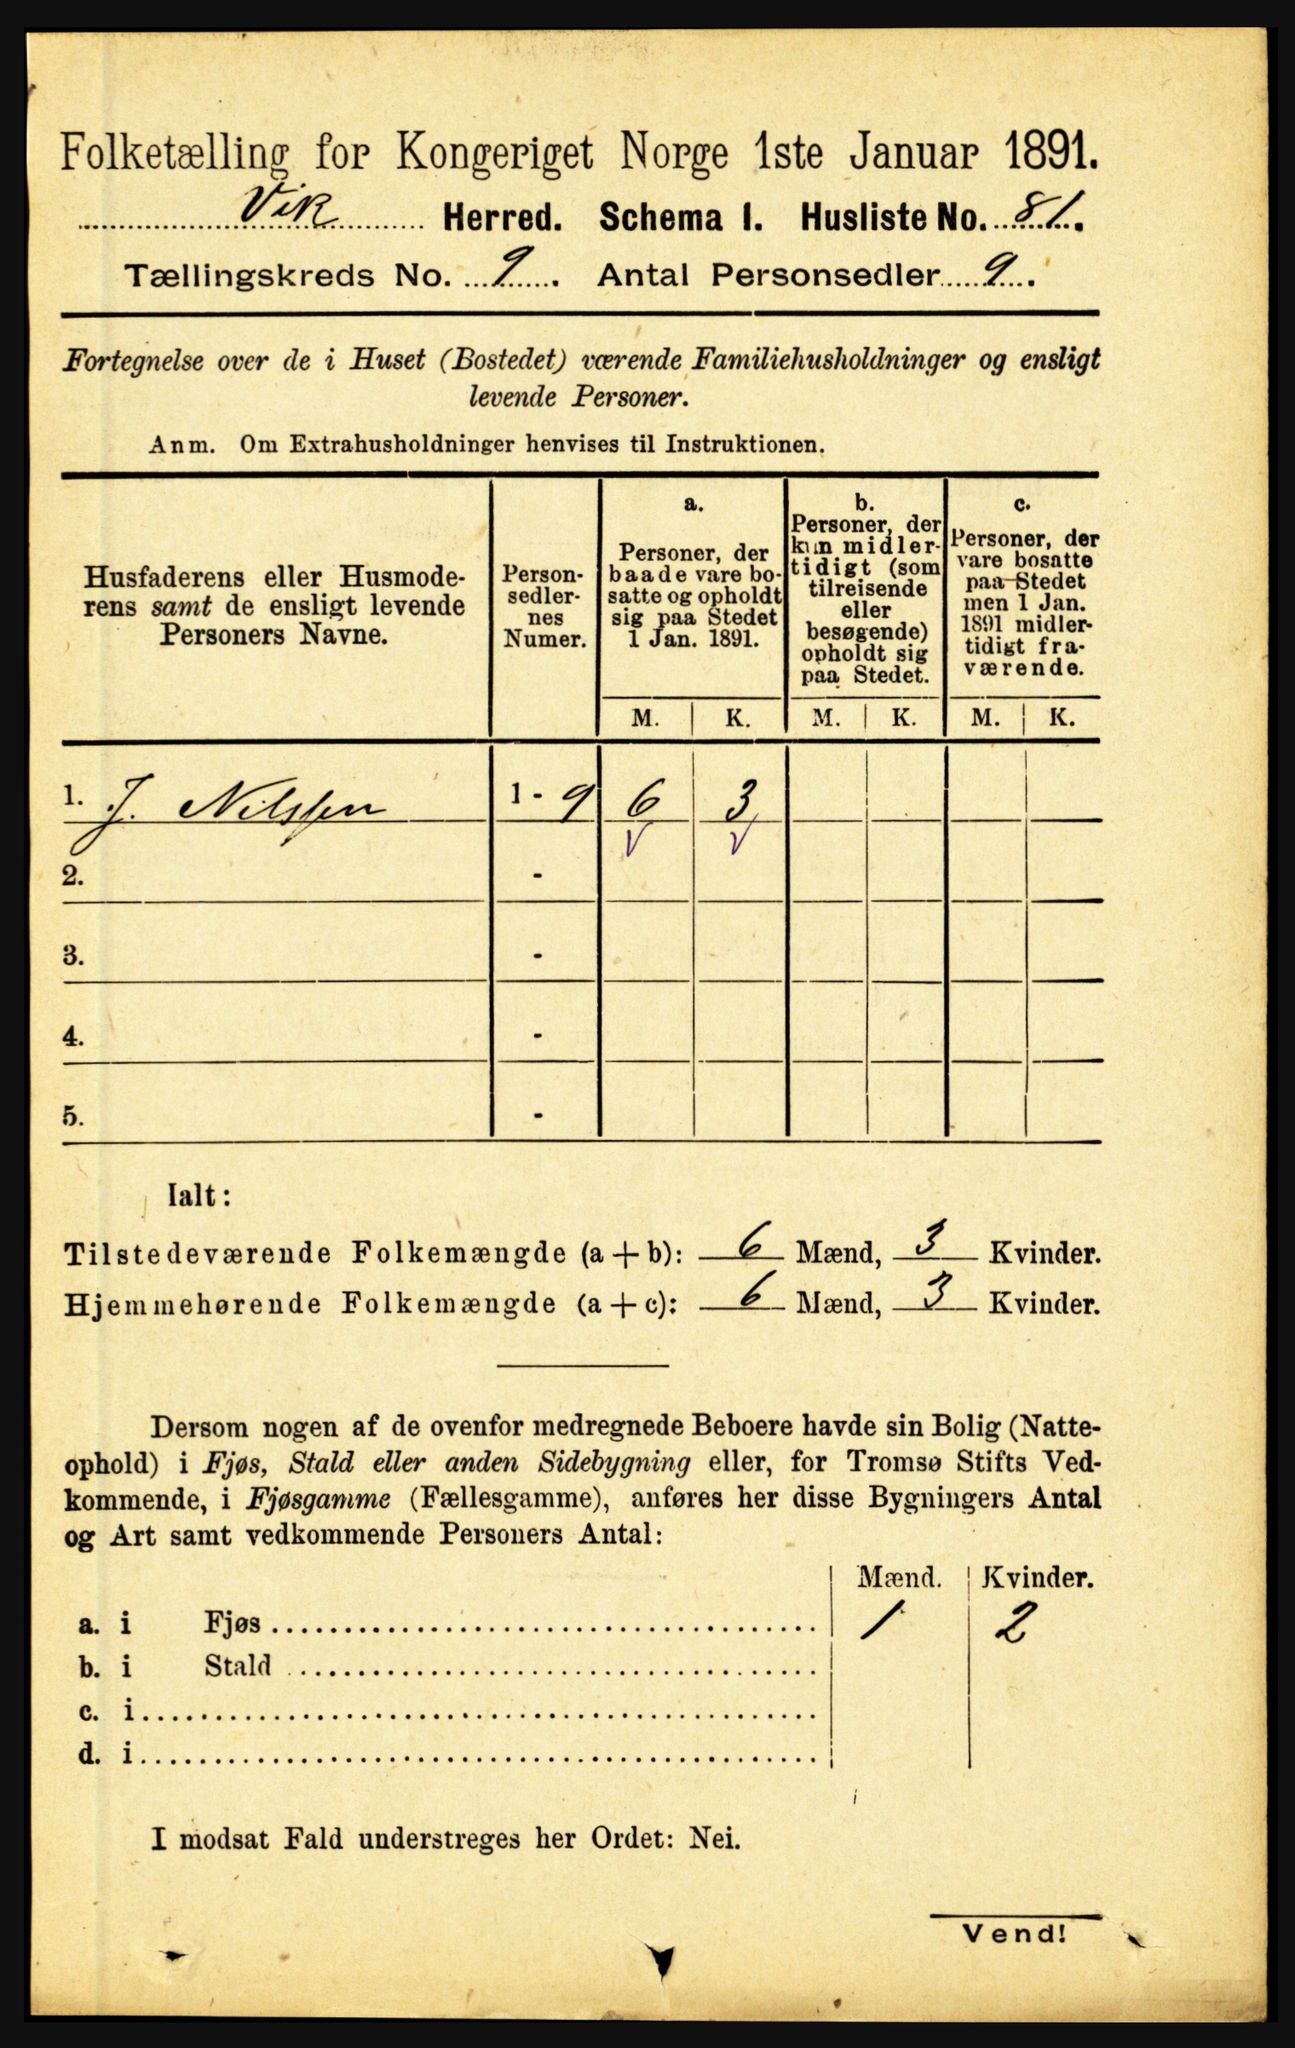 Folketælling for Kongeriget Norge 1ste Januar 1891.
Vik Herred. Schema I. Husliste No. 81.
Tællingskreds No. 9. Antal Personsedler 9.
Fortegnelse over de i Huset (Bostedet) værende Familiehusholdninger og ensligt
levende Personer.
Anm. Om Extrahusholdninger henvises til Instruktionen.
Husfaderens eller Husmode-
rens samt de ensligt levende
Personers Navne.
Person-
sedler-
nes
Numer.
a.
Personer, der
baade vare bo-
satte og opholdt
sig paa Stedet
1 Jan. 1891.
b.
Personer, der
kun midler-
tidigt (som
tilreisende
eller
besøgende)
opholdt sig
paa Stedet.
c.
Personer, der
vare bosatte
paa Stedet
men 1 Jan.
1891 midler-
tidigt fra-
værende.
M. K. M. K. M. K.
1. J. Nilssen 1 - 9 6 3
2. -
3. -
4. -
5. -
Ialt:
Tilstedeværende Folkemængde (a + b): 6 Mænd, 3 Kvinder.
Hjemmehørende Folkemængde (a + c): 6 Mænd, 3 Kvinder.
Dersom nogen af de ovenfor medregnede Beboere havde sin Bolig (Natte-
ophold) i Fjøs, Stald eller anden Sidebygning eller, for Tromsø Stifts Ved-
kommende, i Fjøsgamme (Fællesgamme), anføres her disse Bygningers Antal
og Art samt vedkommende Personers Antal:
Mænd. Kvinder.
a. i Fjøs 1 2
b. i Stald
c. i
d. i
I modsat Fald understreges her Ordet: Nei.
Vend!